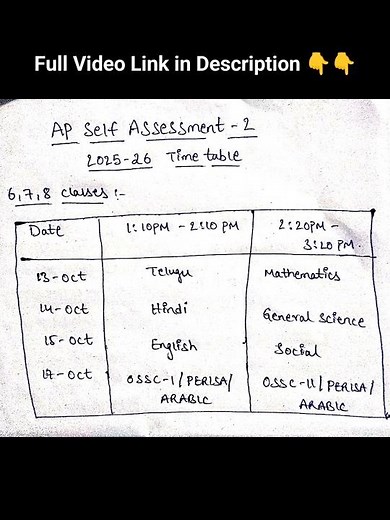 Full Video Link in Description 👇👇
AP Self Assessment - 2
2025-26 Time table
6,7,8 classes :-
Date 1:10PM - 2:10 PM 2:20PM - 3:20 PM.
13-oct Telugu Mathematics
14-oct Hindi General Science
15-oct English Social
17-oct OSSC-I/PERISA/ARABIC OSSC-II/PERISA/ARABIC